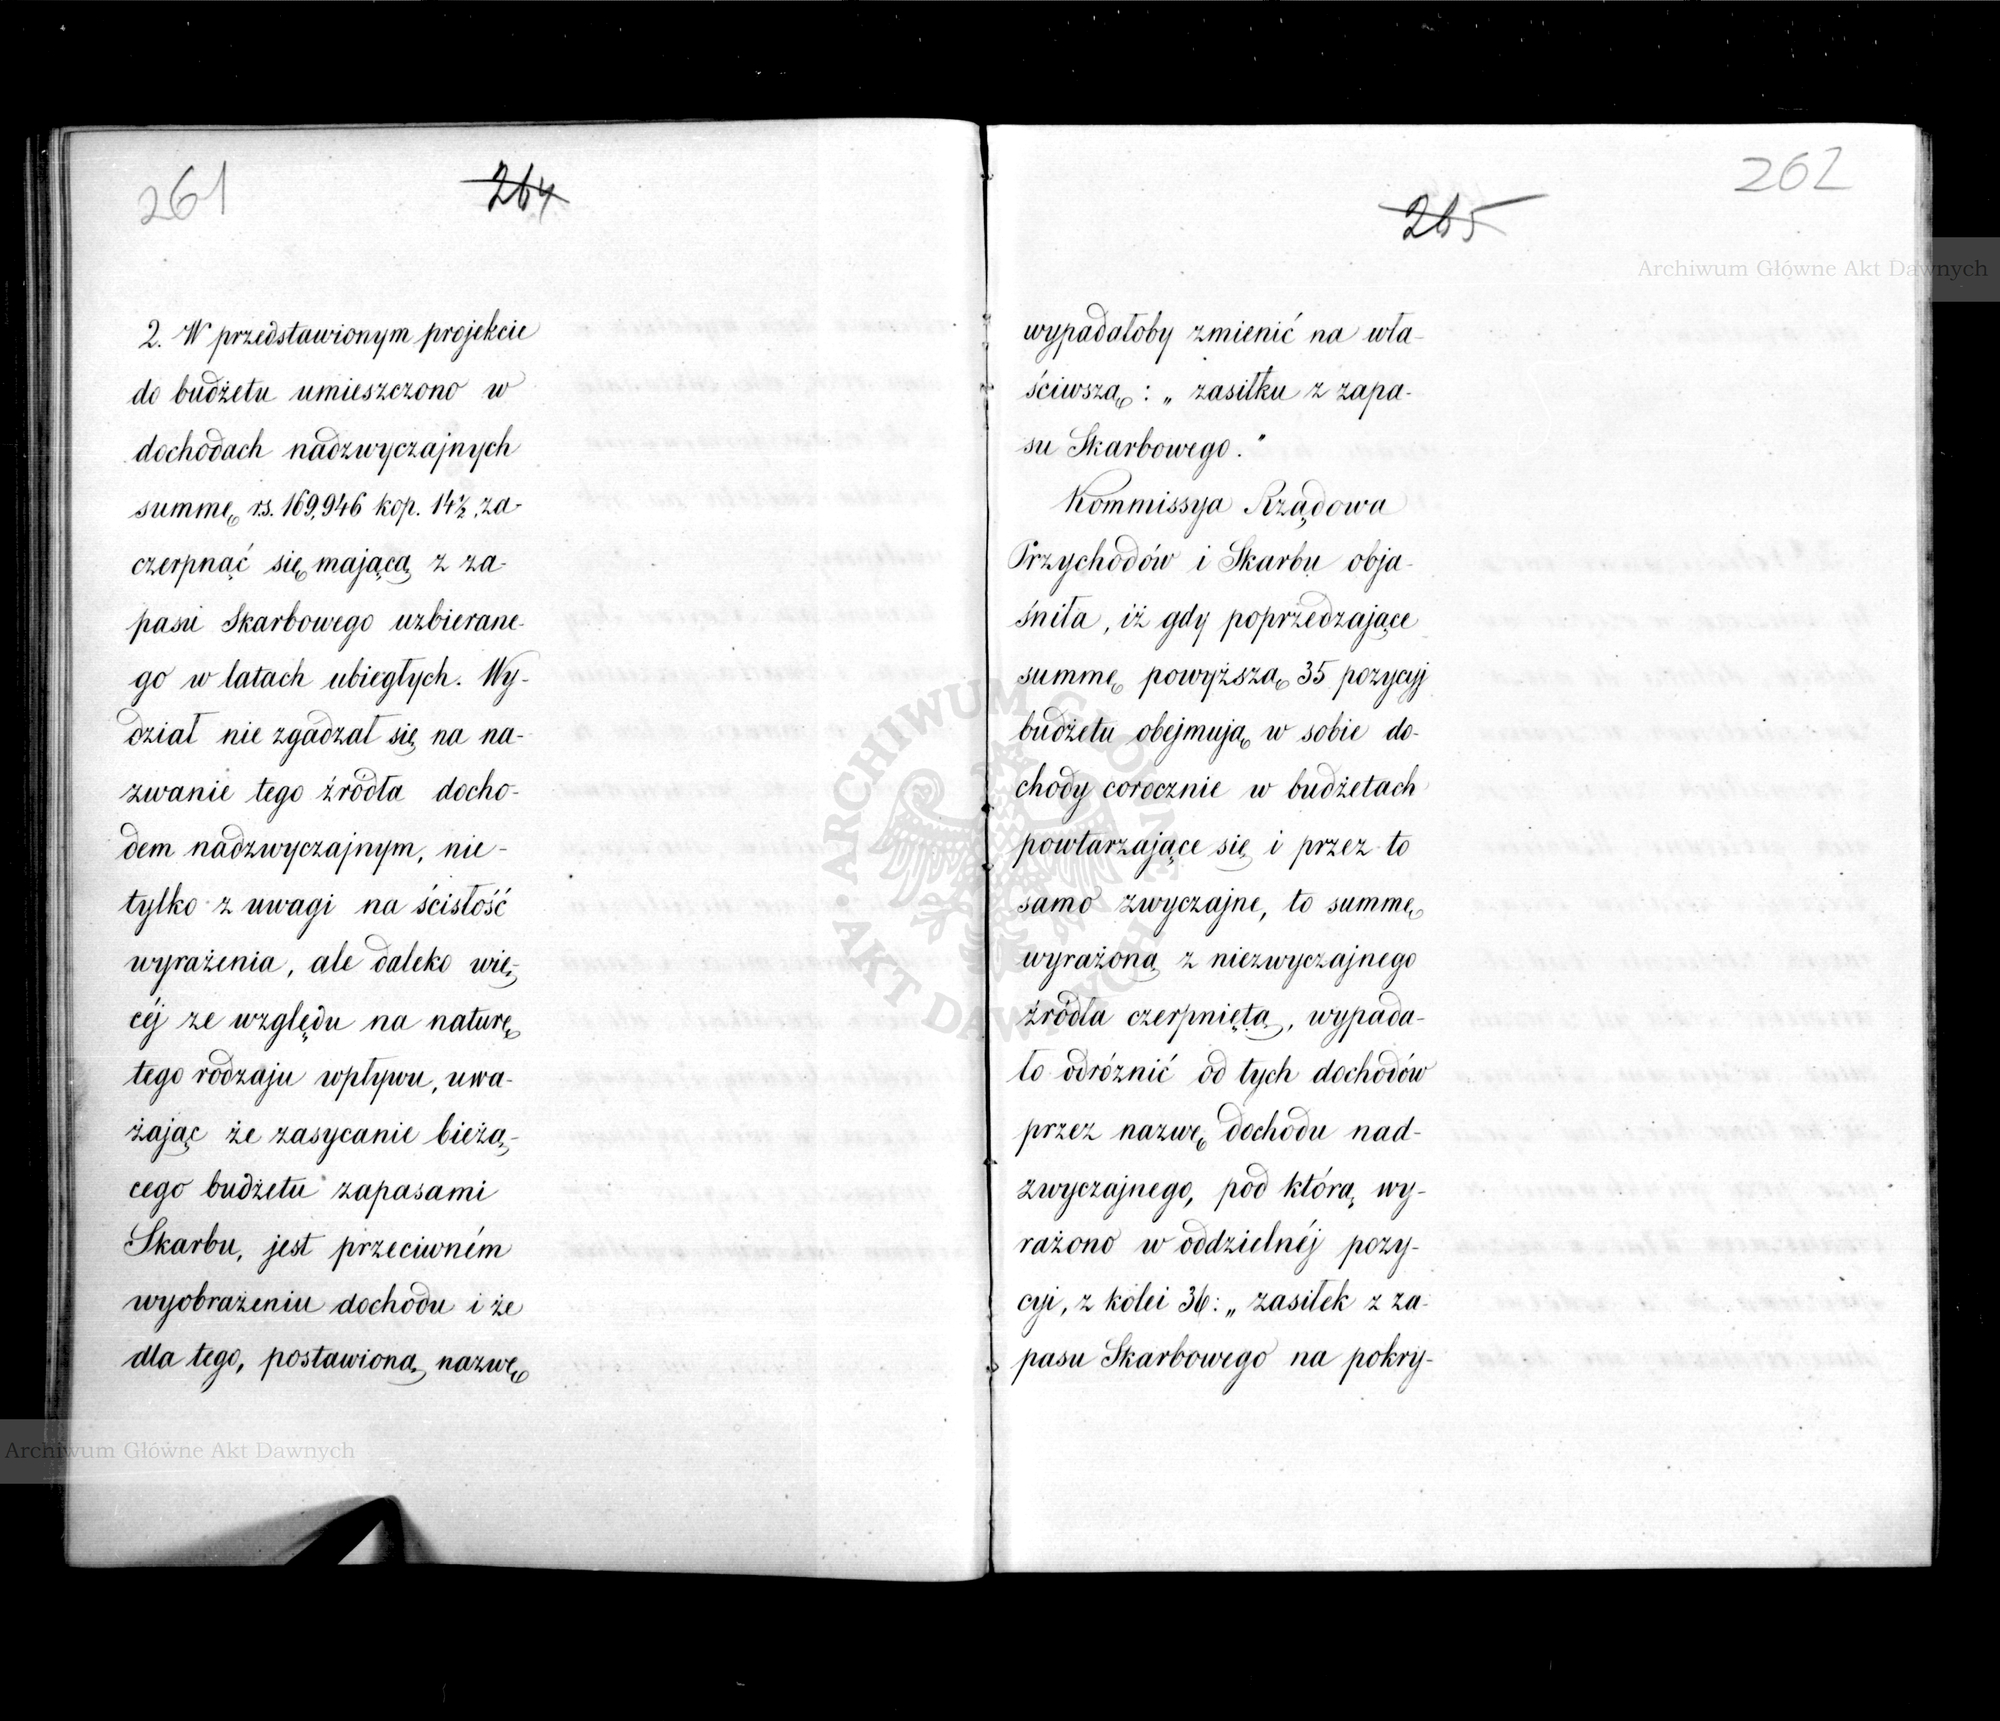 261
264
2. W przedstawionym projekcie
do budżetu umieszczono w
dochodach nadzwyczajnych
summę rs. 169,946 kop. 14½, za-
czerpnąć się mającą z za-
pasu Skarbowego uzbierane-
go w latach ubiegłych. Wy-
dział nie zgadzał się na na-
zwanie tego źródła docho-
dem nadzwyczajnym, nie-
tylko z uwagi na ścisłość
wyrażenia, ale daleko wię-
céj ze względu na naturę
tego rodzaju wpływu, uwa-
żając że zasycanie bieżą-
cego budżetu zapasami
Skarbu, jest przeciwném
wyobrażeniu dochodu i że
dla tego, postawioną nazwę
262
265
wypadałoby zmienić na wła-
ściwszą: „zasiłku z zapa-
su Skarbowego."
Kommissya Rządowa
Przychodów i Skarbu obja-
śniła, iż gdy poprzedzające
summę powyższą 35 pozycyj
budżetu obejmują w sobie do-
chody corocznie w budżetach
powtarzające się i przez to
samo zwyczajne, to summę
wyrażoną z niezwyczajnego
źródła czerpniętą, wypada-
ło odróżnić od tych dochodów
przez nazwę dochodu nad-
zwyczajnego, pod którą wy-
rażono w oddzielnéj pozy-
cyi, z kolei 36: „zasiłek z za-
pasu Skarbowego na pokry-
Archiwum Główne Akt Dawnych
Archiwum Główne Akt Dawnych
ARCHIWUM GŁÓWNE AKT DAWNYCH